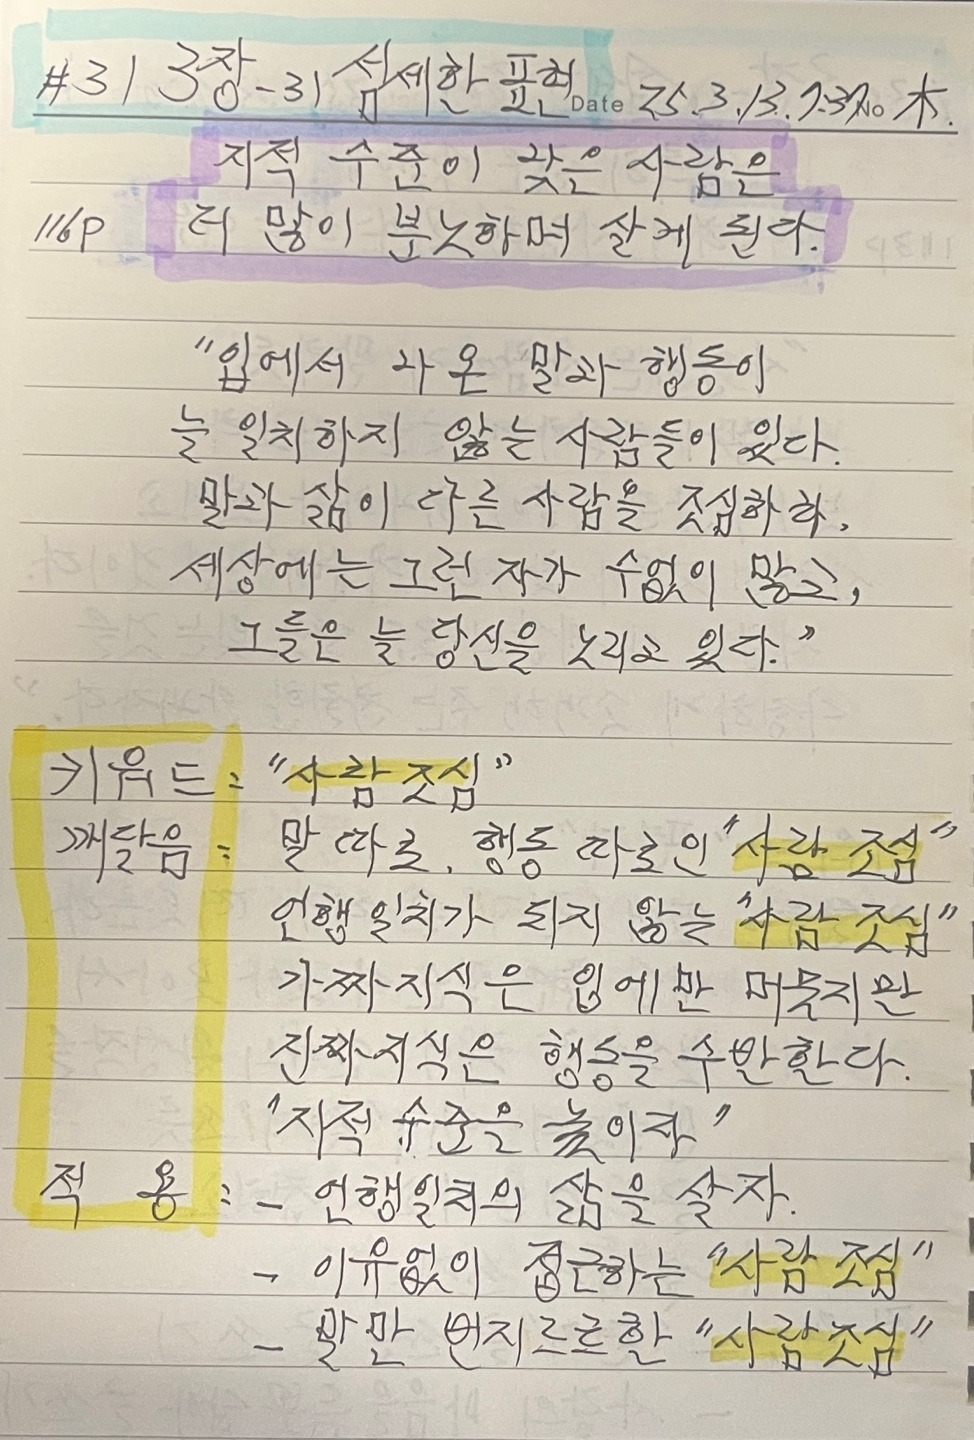 #31 3장-31 섬세한 표현 Date 25.3.13. 7:37 No 木.
지적 수준이 낮은 사람은
116p 더 많이 분노하며 살게 된다.
"입에서 나온 말과 행동이
늘 일치하지 않는 사람들이 있다.
말과 삶이 다른 사람을 조심하라,
세상에는 그런 자가 수없이 많고,
그들은 늘 당신을 노리고 있다."
키워드 : "사람 조심"
깨달음 : 말 따로, 행동 따로인 "사람 조심"
언행일치가 되지 않는 "사람 조심"
가짜지식은 입에만 머물지만
진짜지식은 행동을 수반한다.
"지적 수준을 높이자"
적 용 : - 언행일치의 삶을 살자.
- 이유없이 접근하는 "사람 조심"
- 말만 번지르르한 "사람 조심"